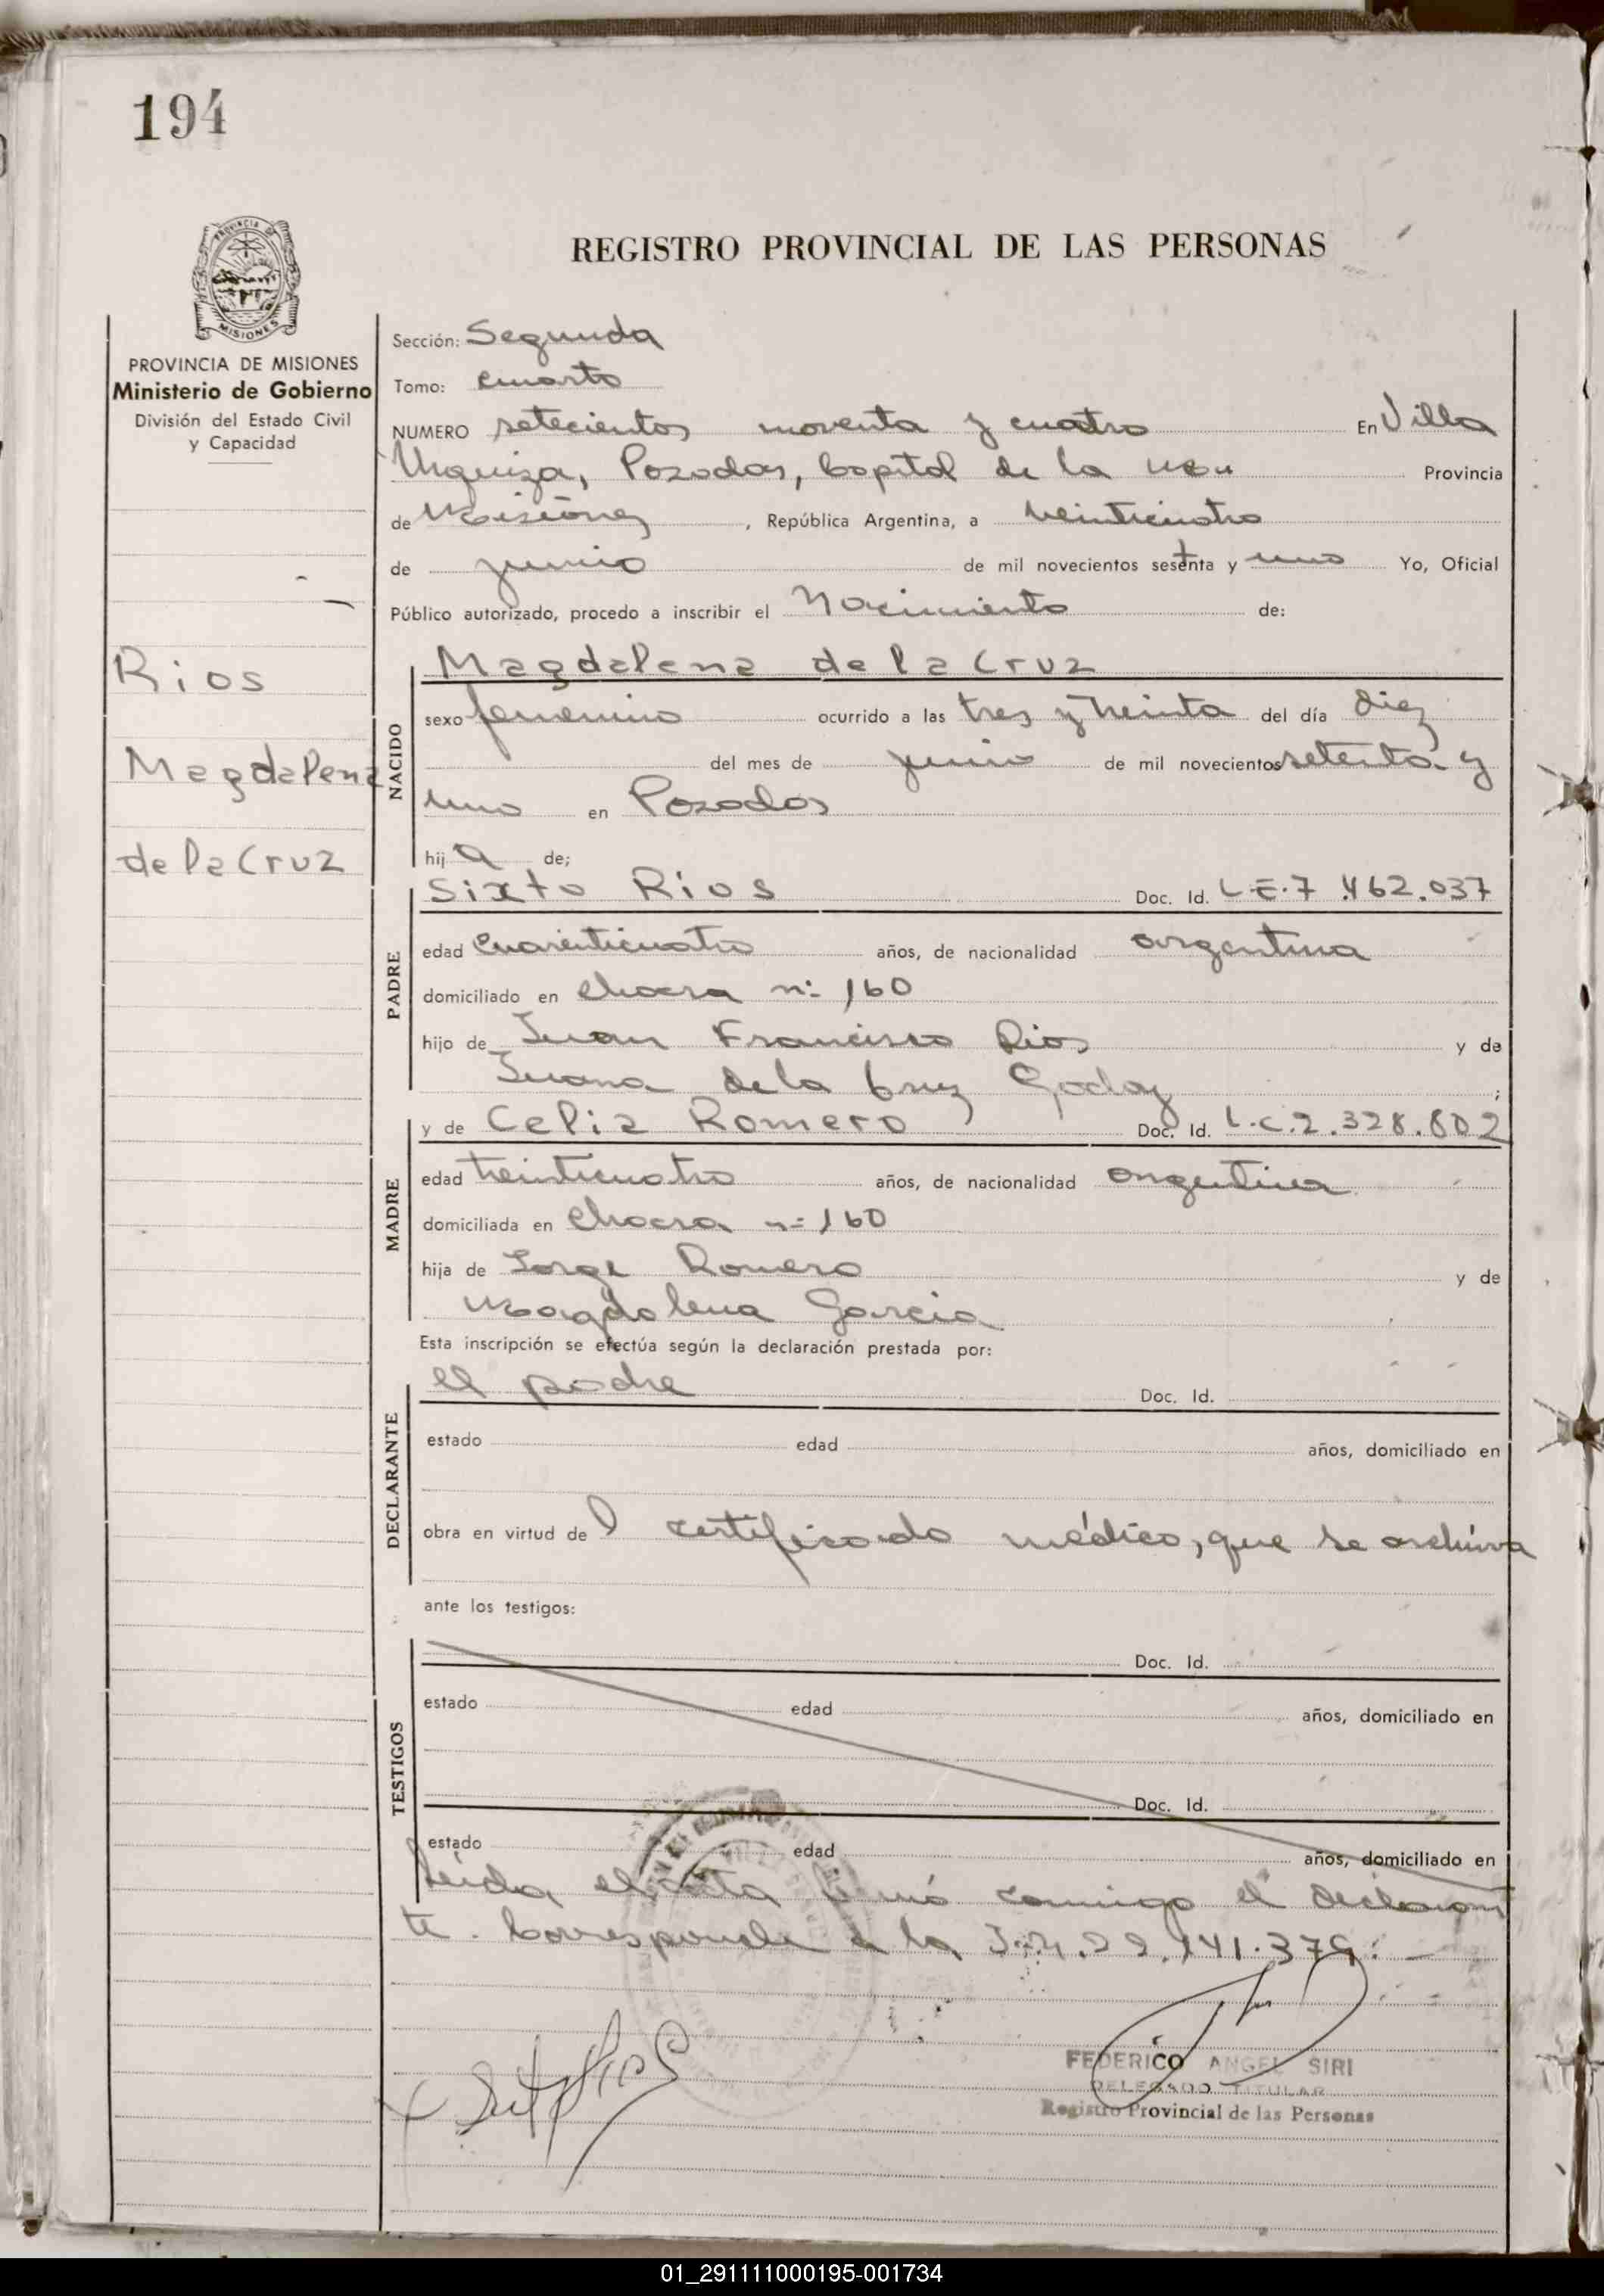 194
PROVINCIA DE
MISIONES
REGISTRO PROVINCIAL DE LAS PERSONAS
PROVINCIA DE MISIONES
Ministerio de Gobierno
División del Estado Civil
y Capacidad
Rios
Magdalena
de la Cruz
Sección: Segunda
Tomo: cuarto
NUMERO setecientos noventa y cuatro En Villa
Urquiza, Posadas, Capital de la Provincia
de Misiones, República Argentina, a veinticuatro
de junio de mil novecientos setenta y uno Yo, Oficial
Público autorizado, procedo a inscribir el Nacimiento de:
Magdalena de la Cruz
NACIDO
sexo femenino ocurrido a las tres y treinta del día diez
del mes de junio de mil novecientos setenta y
uno en Posadas
hija de;
Sixto Rios Doc. Id. L.E.7.462.037
PADRE
edad cuarenticuatro años, de nacionalidad argentina
domiciliado en chacra nº 160
hijo de Juan Francisco Rios y de
Juana de la Cruz Godoy;
y de Celia Romero Doc. Id. L.C.2.328.802
MADRE
edad treinticuatro años, de nacionalidad argentina
domiciliada en chacra nº 160
hija de Jorge Romero y de
Magdalena Garcia
Esta inscripción se efectúa según la declaración prestada por:
el padre Doc. Id.
DECLARANTE
estado edad años, domiciliado en
obra en virtud del certificado médico, que se archiva
ante los testigos:
Doc. Id.
TESTIGOS
estado edad años, domiciliado en
Doc. Id.
estado edad años, domiciliado en
Leída el acta firmó conmigo el declaran
te. Corresponde a la 22.141.379.
Rios
FEDERICO ANGEL SIRI
DELEGADO TITULAR
Registro Provincial de las Personas
01_291111000195-001734